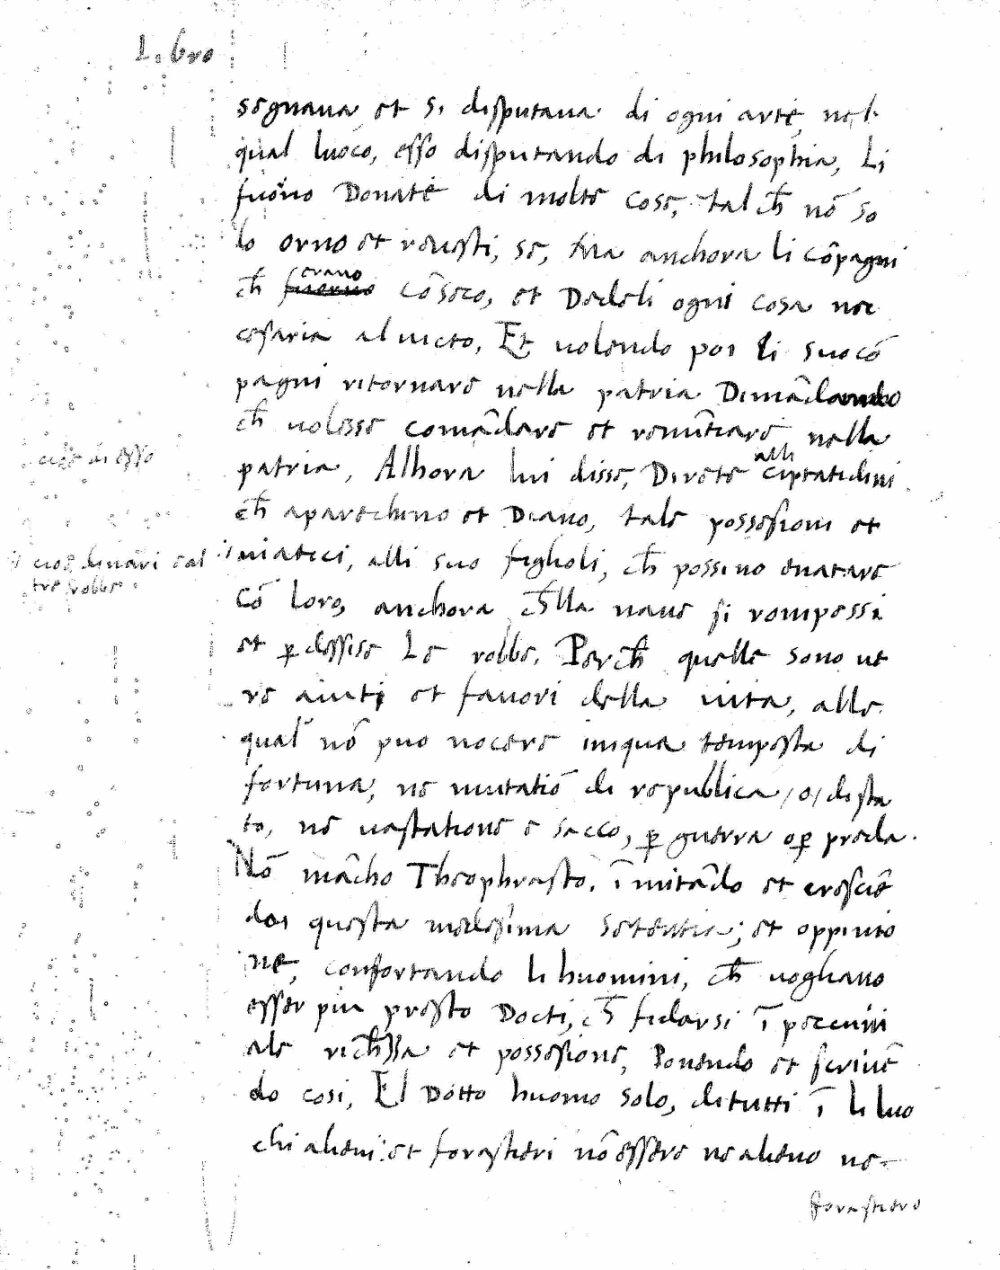 Libro
segnaua et si disputaua di ogni arte, nel
qual luoco, esso disputando di philosophia, Li
fuõno Donate di molte cose, tal ch̃ nõ so
lo orno et reuesti, se, Ma anchora li cõpagni
ch̃ erano cõseco, et Dedeli ogni cosa nec
cesaria al uicto, Et uolendo poi li suo cõ
pagni ritornare nella patria Dimãdando
ch̃ uolesse comãdare et renũtiare nella
cioe di esso
patria, Alhora lui disse, Direte alli ciptatidini
ch̃ aparechino et Diano, tale possesioni et
cioe, denari et al
tre robbe
uiatici, alli suo figlioli, ch̃ possino enatare
cõ loro, anchora ch̃lla naue si rompessi
et p̱dessise Le robbe. Perch̃ quelle sono ue
re aiuti et fauori della uita, alle
qual nõ puo nocere iniqua tempesta di
fortuna, ne mutatiõ di republica /o/ di sta
to, ne uastatione e sacco, p̱ guerra o p̱ preda.
Nõ mãcho Theophrasto. ĩmitãdo et crescẽ
doi questa medesima setentia; et oppinio
ne, confortando li huomini, ch̃ uogliano
esser piu presto Docti, ch̃ fidarsi ĩ peccuni
ale rich̃ssa et possesione, Ponendo et scriuẽ
do cosi, El Dotto huomo solo, di tutti ĩ li luo
chi alieni: et forastieri nõ essere ne alieno ne
forastiero